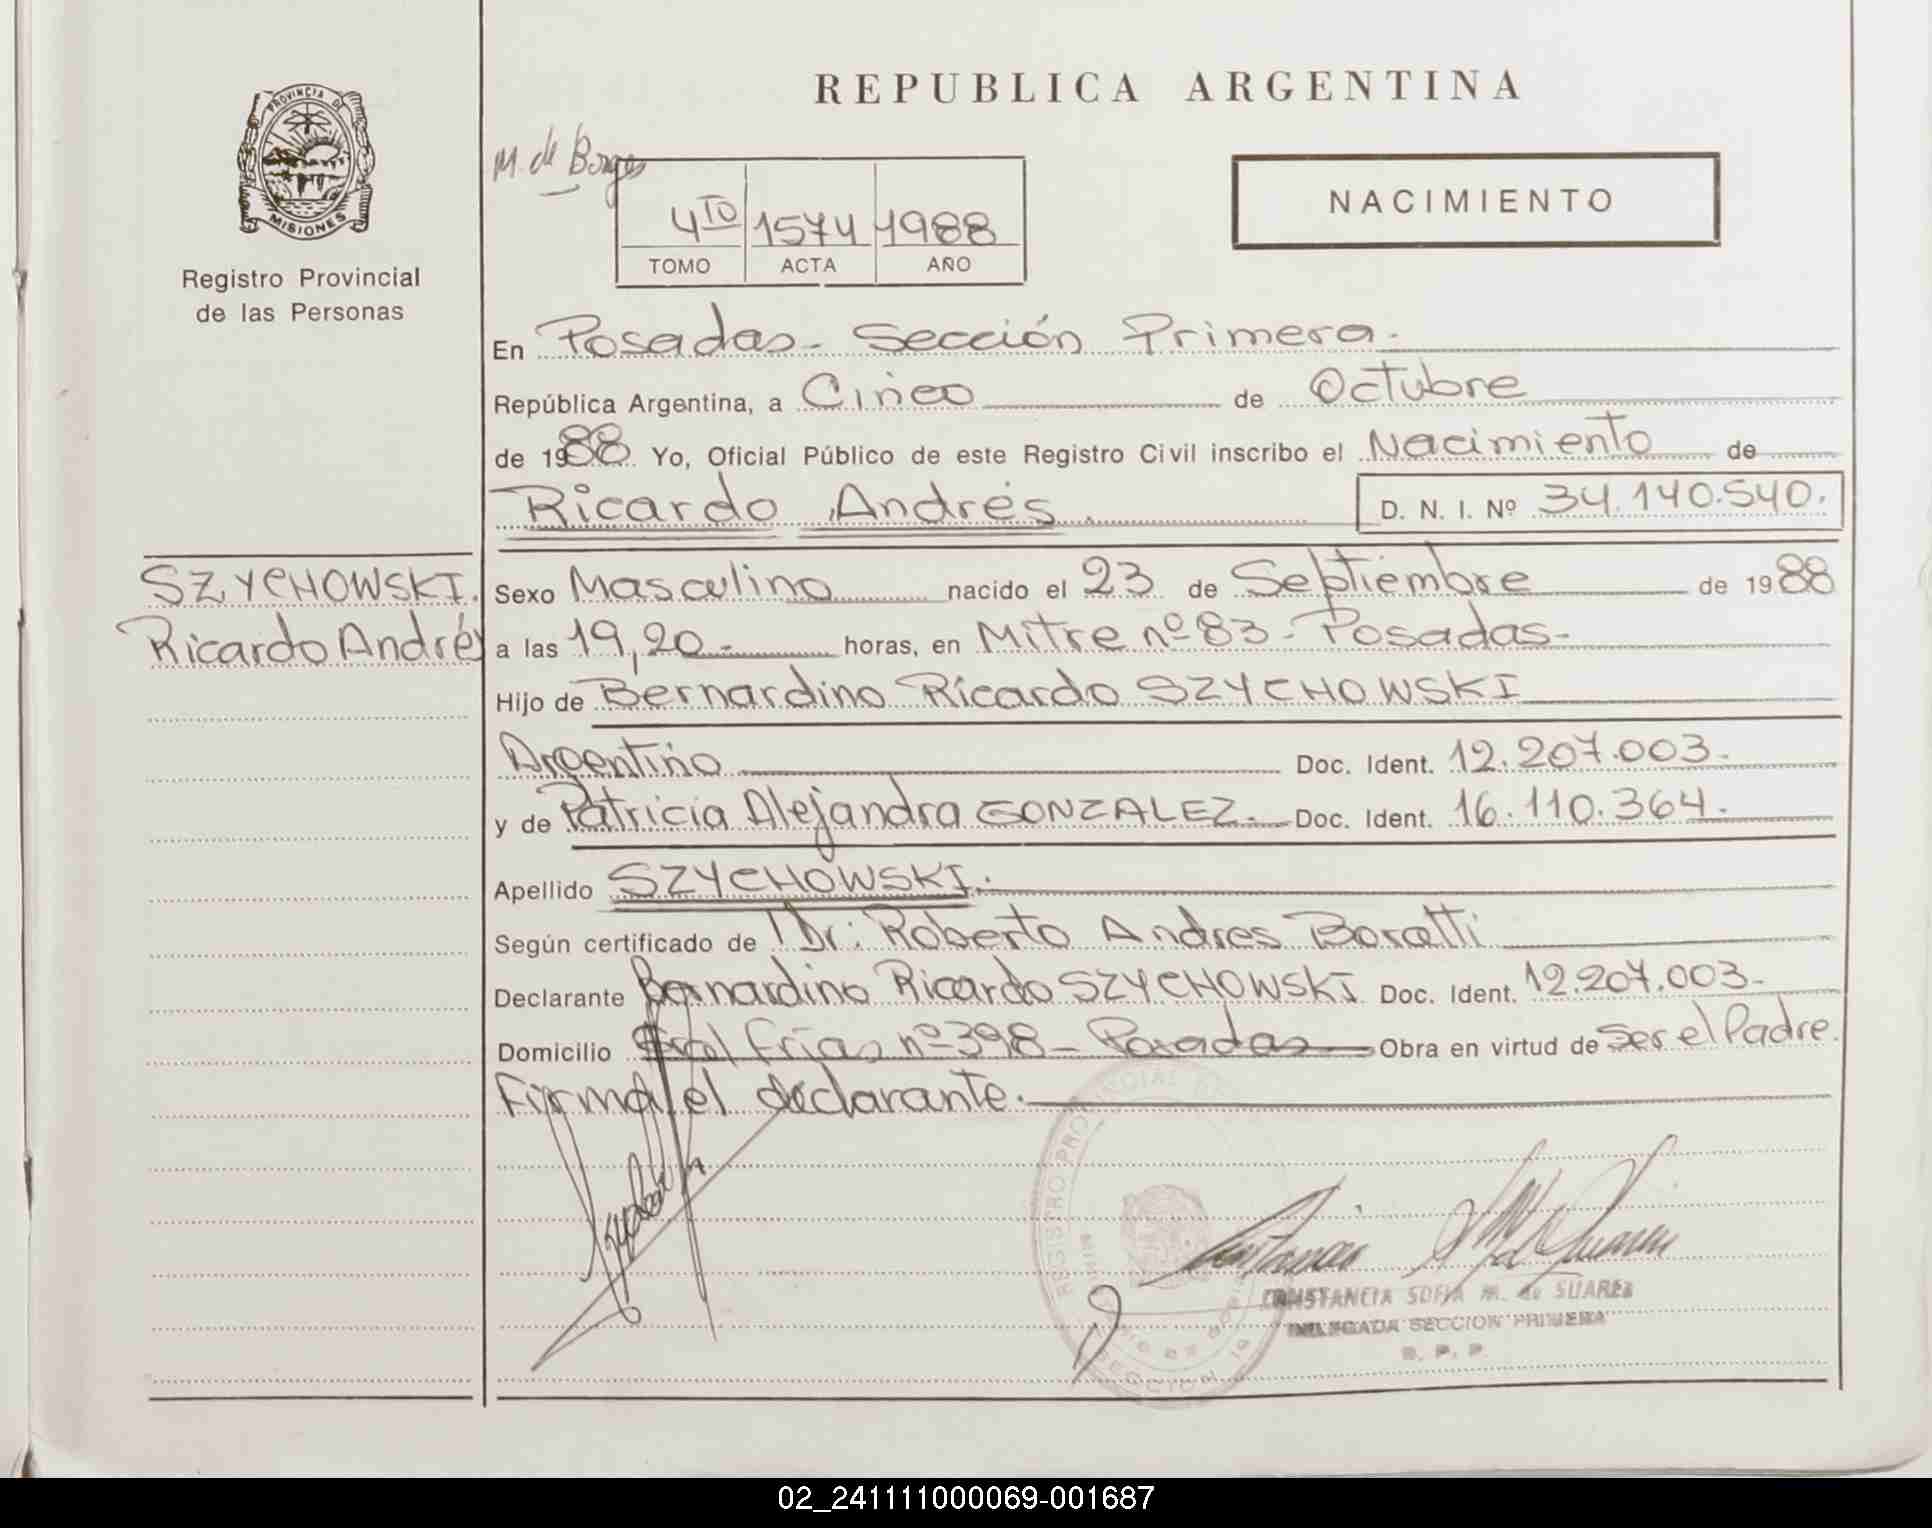 PROVINCIA DE
MISIONES
Registro Provincial
de las Personas
REPUBLICA ARGENTINA
M. de Borges
4TO 1574 1988
TOMO ACTA AÑO
NACIMIENTO
En Posadas - Sección Primera.
República Argentina, a Cinco de Octubre
de 1988 Yo, Oficial Público de este Registro Civil inscribo el Nacimiento de
Ricardo Andrés D. N. I. Nº 34.140.540.
SZYCHOWSKI.
Ricardo Andrés
Sexo Masculino nacido el 23 de Septiembre de 1988
a las 19,20 - horas, en Mitre nº 83 - Posadas -
Hijo de Bernardino Ricardo SZYCHOWSKI
Argentino Doc. Ident. 12.207.003 -
y de Patricia Alejandra GONZALEZ. Doc. Ident. 16.110.364.
Apellido SZYCHOWSKI.
Según certificado de Dr: Roberto Andres
Declarante Bernardino Ricardo SZYCHOWSKI Doc. Ident. 12.207.003 -
Domicilio Frías nº 398 - Posadas Obra en virtud de ser el Padre.
Firma el declarante.
REGISTRO PROVINCIAL DE
CONSTANCIA SOFIA M. de SUAREZ
DELEGADA SECCION PRIMERA
R. P. P.
02_241111000069-001687